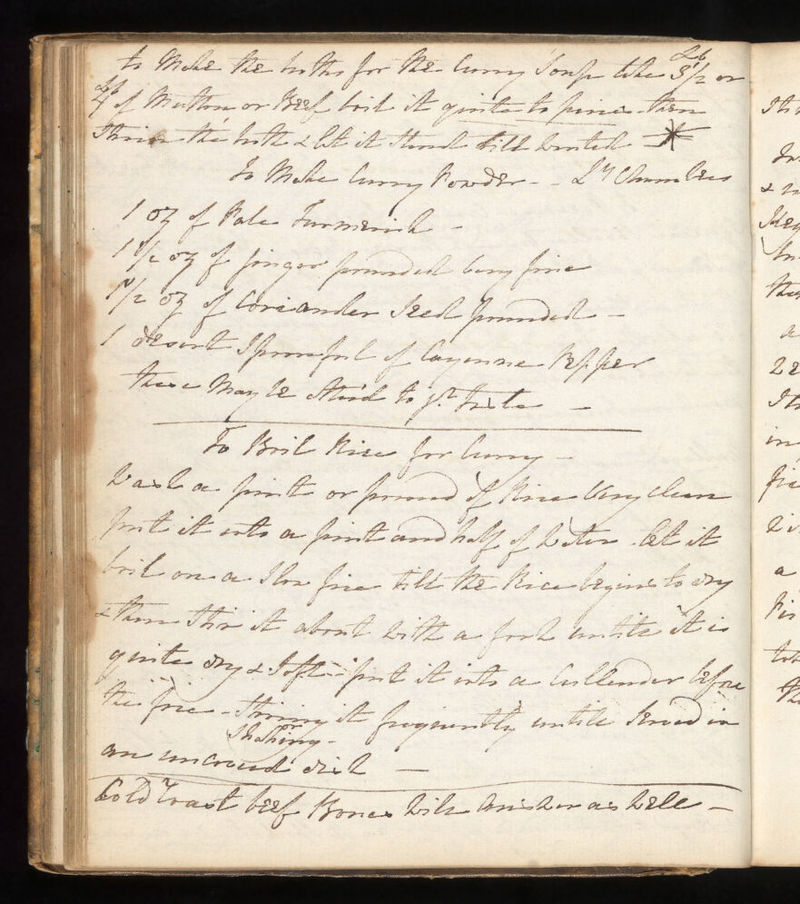 to Make the broth for the Curry Soup take 3 1/2 lb or
4 lb of Mutton or Beef boil it quite to pieces then
Strain the broth & let it stand till wanted *
To Make Curry Powder - - Ly Chambers
1 oz of Pale Turmerick -
1 1/2 oz of ginger pounded very fine
1 1/2 oz of Coriander Seed pounded -
1 desert Spoonful of Cayenne Pepper
these May be Alter'd to yr. taste -
To Boil Rice for Curry -
Wash a pint or pound of Rice Very clean
put it into a pint and half of Water let it
boil on a Slow fire till the Rice begins to dry
& then Stir it about With a fork untile it is
quite dry & Soft - put it into a Cullender before
the fire - Stirring it frequently untile Served in
Shaking -
an uncoverd dish -
Cold roast beef Bones Will Answer as Well -
Its
&
the
a
in
a
the